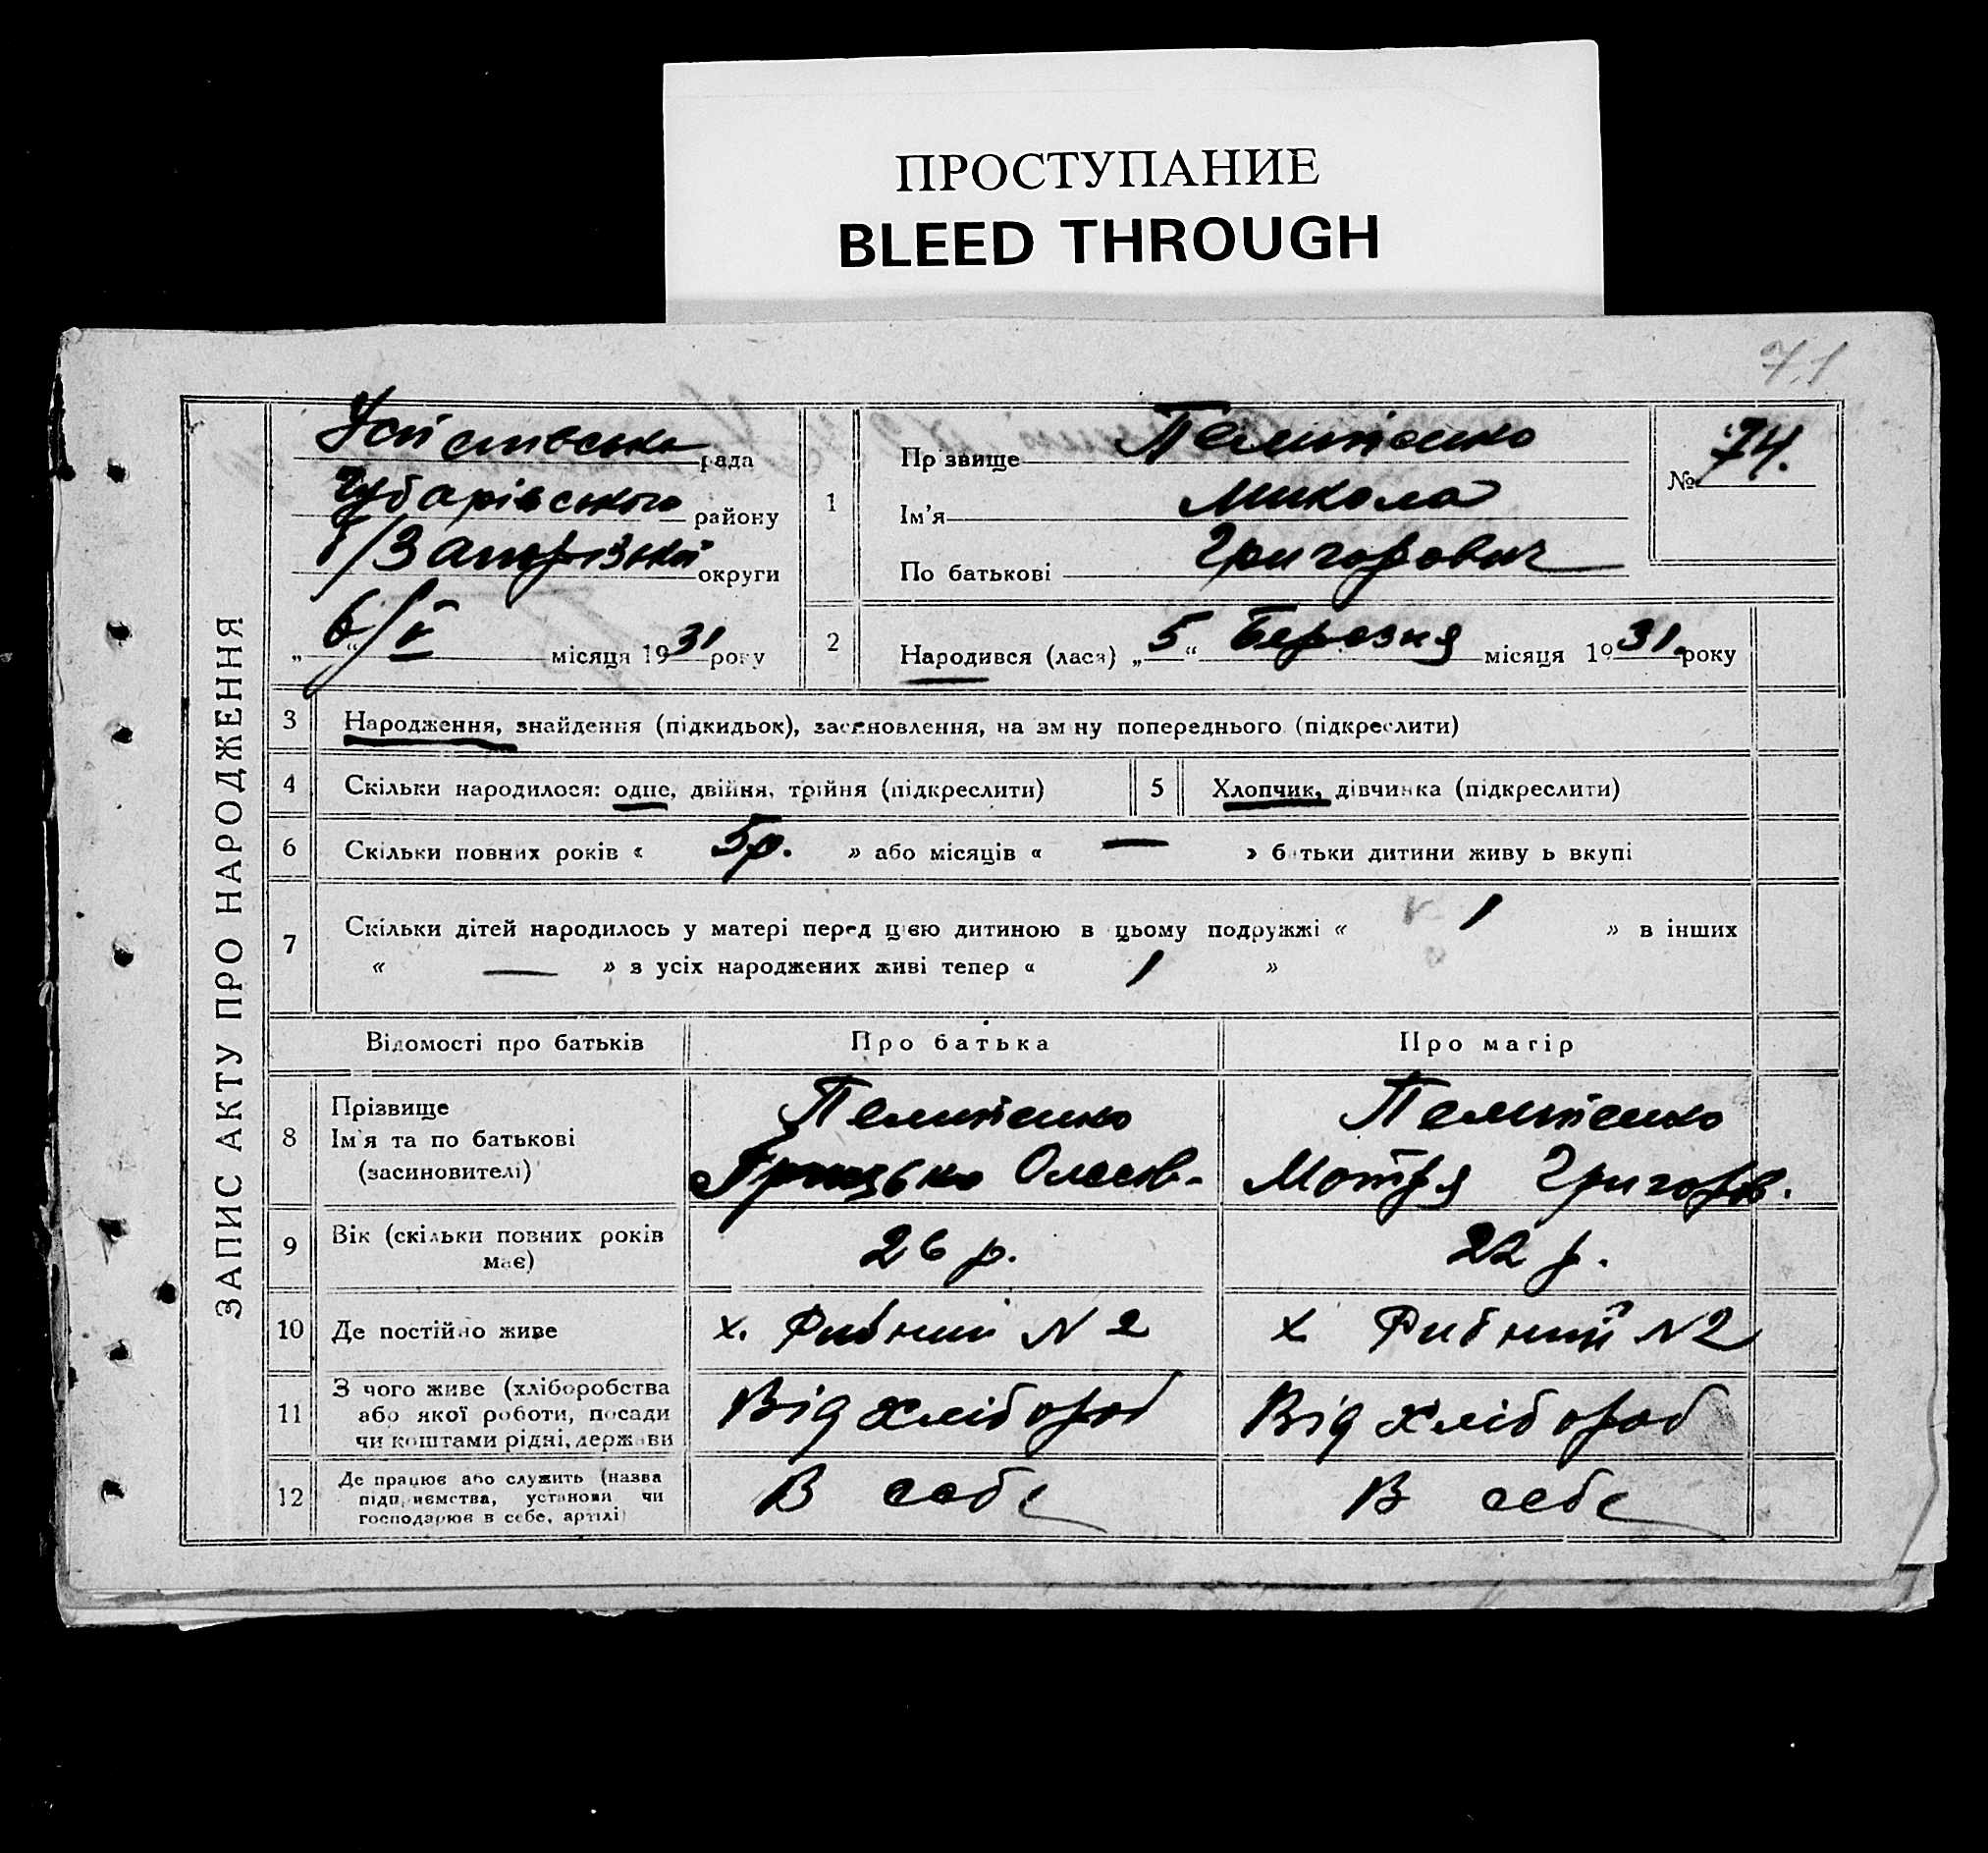 ПРОСТУПАНИЕ
BLEED THROUGH
71
ЗАПИС АКТУ ПРО НАРОДЖЕННЯ
рада
Губарівського району
б/Запорізької округи
„6/V“ місяця 1931 року
1
Прізвище
Ім'я Микола
По батькові Григорович
№ 74.
2
Народився (лася) „5“ Березня місяця 1931. року
3 Народження, знайдення (підкидьок), засиновлення, на зміну попереднього (підкреслити)
4 Скільки народилося: одне, двійня, трійня (підкреслити)
5 Хлопчик, дівчинка (підкреслити)
6 Скільки повних років « 5р. » або місяців « — » батьки дитини живуть вкупі
7 Скільки дітей народилось у матері перед цією дитиною в цьому подружжі « 1 » в інших
« — » з усіх народжених живі тепер « 1 »
Відомості про батьків Про батька Про матір
8 Прізвище
Ім'я та по батькові
(засиновителі)
Грицько Олексов.
Мотря Григоров.
9 Вік (скільки повних років
має)
26 р. 22 р.
10 Де постійно живе х. Рибний N 2 х Рибний N2
11 З чого живе (хліборобства
або якої роботи, посади
чи коштами рідні, держави
Від хлібороб Від хлібороб
12 Де працює або служить (назва
підприємства, установи чи
господарює в себе, артілі)
В себе В себе